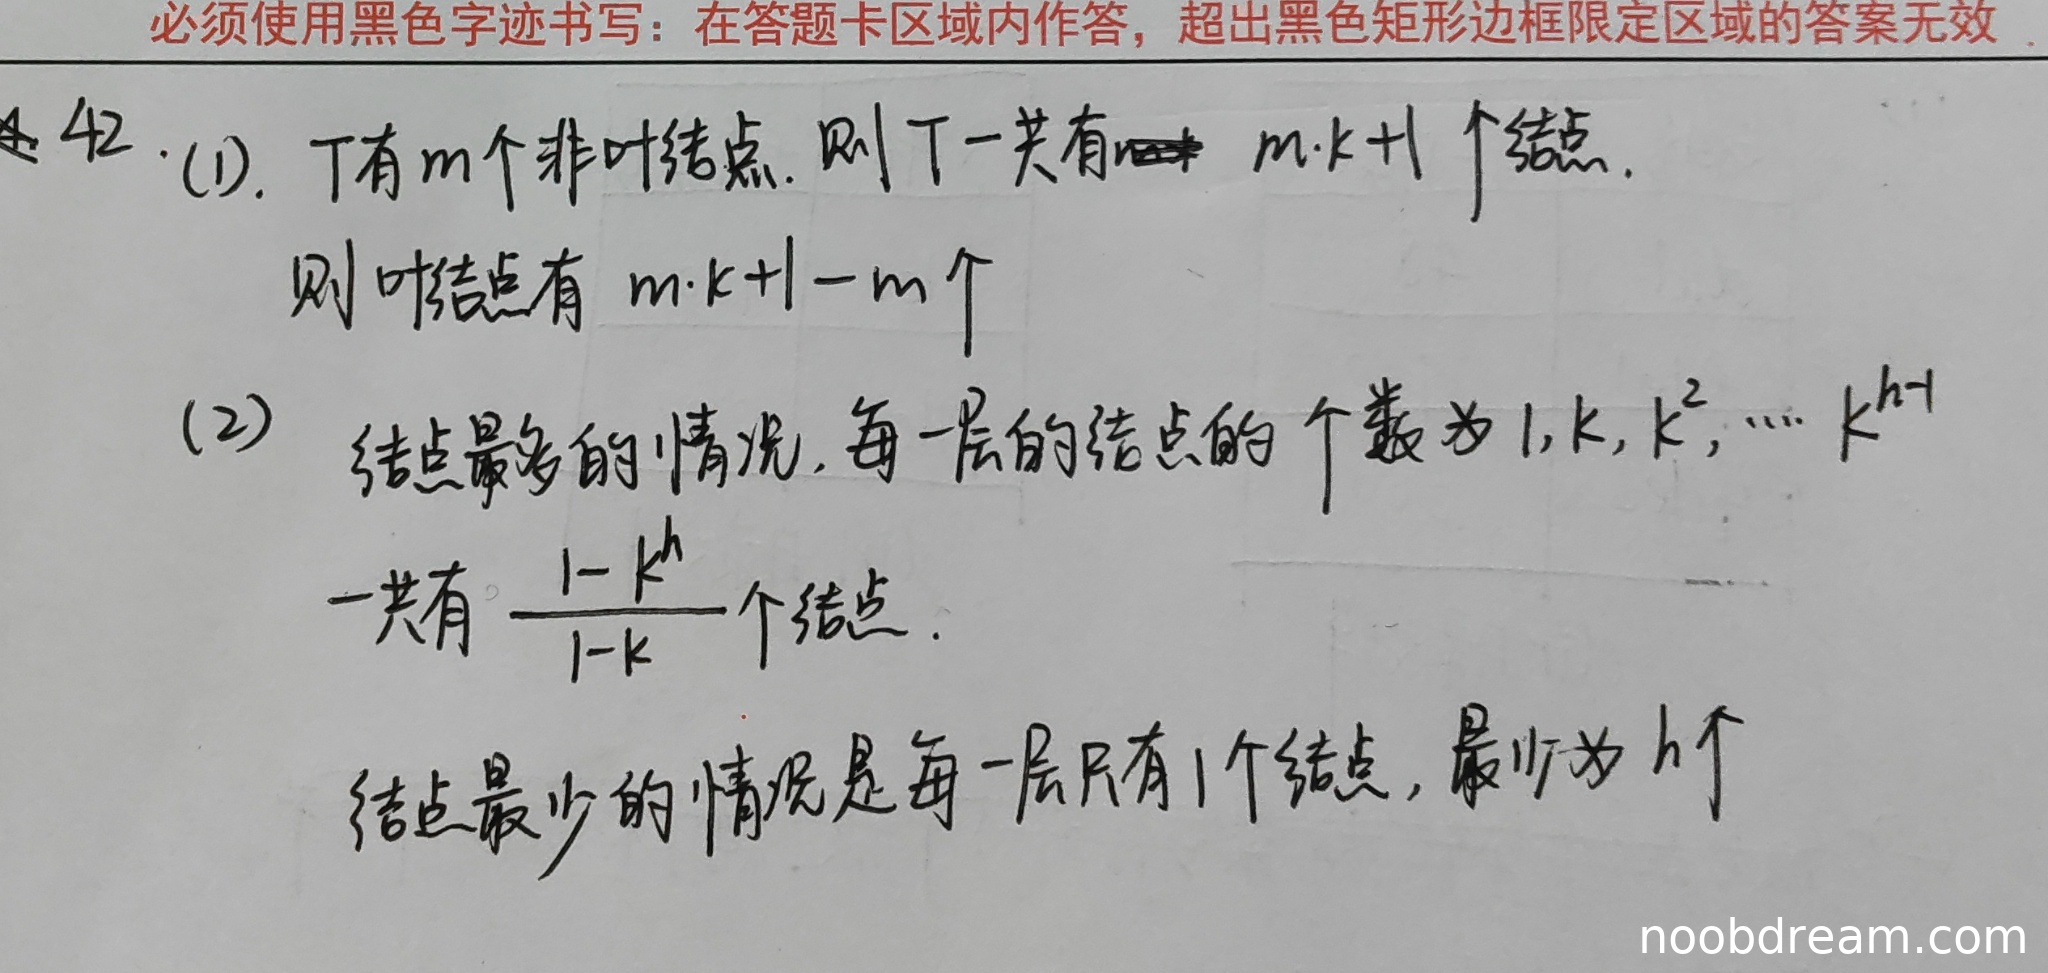 必须使用黑色字迹书写：在答题卡区域内作答，超出黑色矩形边框限定区域的答案无效
42.(1). T有m个非叶结点. 则T一共有 m·k+1 个结点.
则叶结点有 m·k+1-m个
(2) 结点最多的情况, 每一层的结点的个数为 1, k, k², ···· k^{h-1}
一共有 \frac{1-k^h}{1-k} 个结点.
结点最少的情况是每一层只有1个结点, 最少为h个
noobdream.com